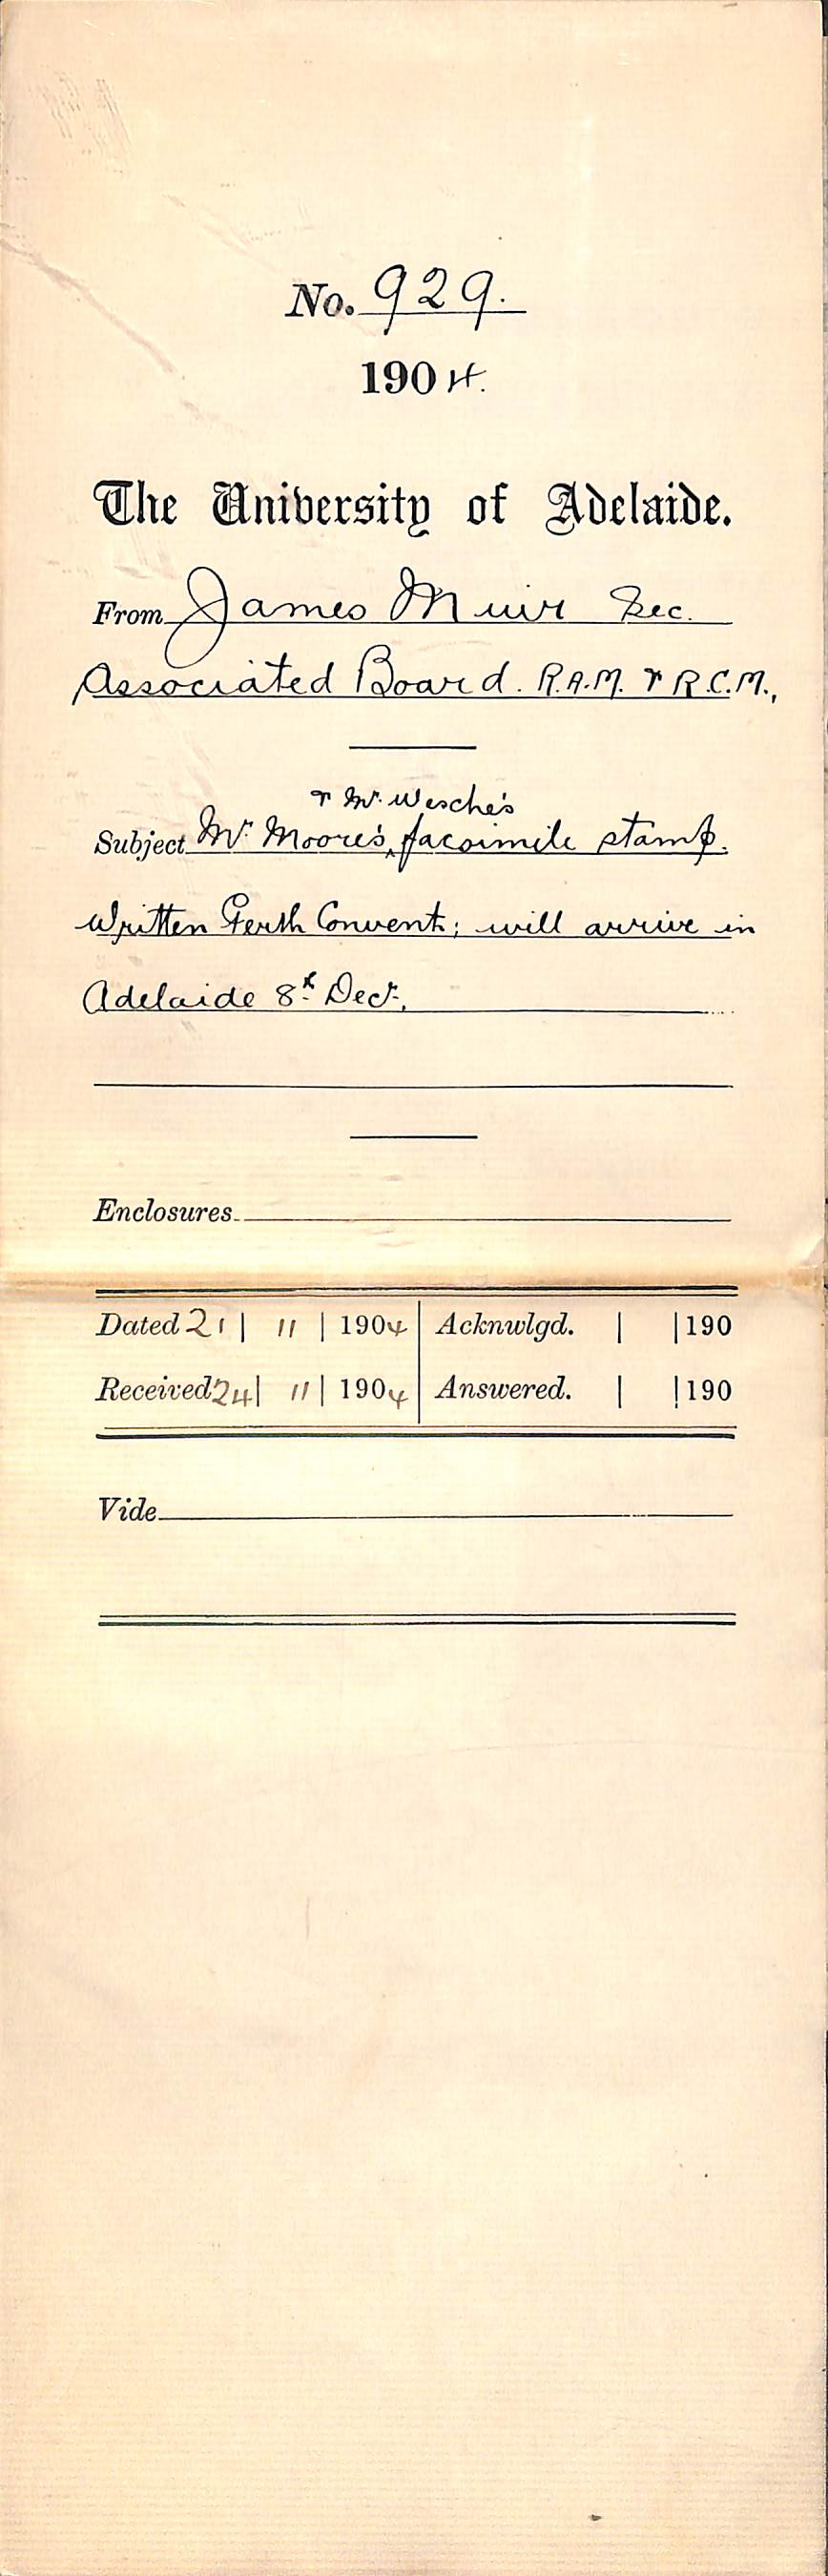 No. 929.
1904.
The University of Adelaide.
From James Muir Sec.
Associated Board. R.A.M. & R.C.M.,
& Mr. Wesche's
Subject Mr Moore's, facsimile stamp.
Written Perth Convent; will arrive in
Adelaide 8th Decr.
Enclosures
Dated 21 | 11 | 1904 | Acknwlgd. | | 190
Received 24 | 11 | 1904 | Answered. | | 190
Vide